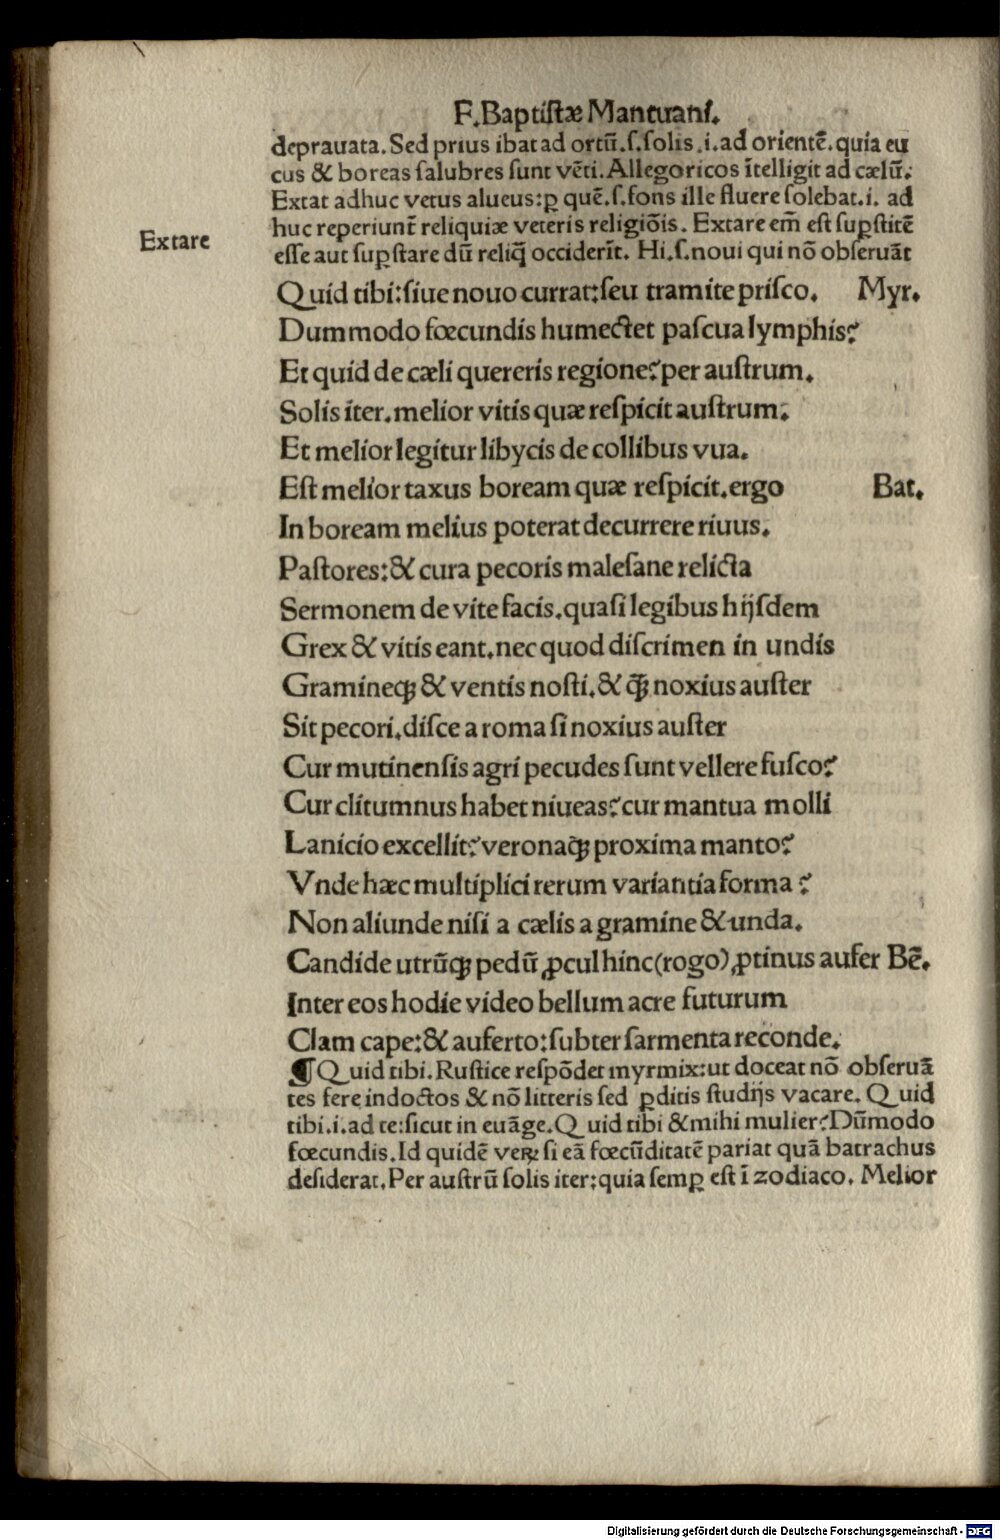 F.Baptistæ Mantuans.
deprauata. Sed prius ibat ad ortū.ſ.ſolis.i.ad orientē.quia eu
cus & boreas ſalubres ſunt vēti. Allegoricos ītelligit ad cælū.
Extat adhuc vetus alueus:ꝑ quē.ſ.fons ille fluere ſolebat.i. ad
huc reperiunt̄ reliquiæ veteris religiōis. Extare em̄ eſt ſuꝑſtitē
Extare
eſſe aut ſuꝑſtare dū reliq̄ occiderīt. Hi.ſ.noui qui nō obſeruāt
Quid tibi:ſiue nouo currat:ſeu tramite priſco. Myr.
Dummodo fœcundis humectet paſcua lymphis?
Et quid de cæli quereris regione?per auſtrum.
Solis iter.melior vitis quæ reſpicit auſtrum.
Et melior legitur libycis de collibus vua.
Eſt melior taxus boream quæ reſpicit.ergo Bat.
In boream melius poterat decurrere riuus.
Paſtores:& cura pecoris maleſane relicta
Sermonem de vite facis.quaſi legibus hijſdem
Grex & vitis eant.nec quod diſcrimen in undis
Gramineqꝫ & ventis noſti.& q̄ꝫ noxius auſter
Sit pecori.diſce a roma ſi noxius auſter
Cur mutinenſis agri pecudes ſunt vellere fuſco?
Cur clitumnus habet niueas?cur mantua molli
Lanicio excellit?veronaq̄ꝫ proxima manto?
Vnde hæc multiplici rerum variantia forma?
Non aliunde niſi a cælis a gramine & unda.
Candide utrūqꝫ pedū ꝓcul hinc(rogo)ꝓtinus aufer Bē.
Inter eos hodie video bellum acre futurum
Clam cape:& auferto:ſubter ſarmenta reconde.
¶Quid tibi. Ruſtice reſpōdet myrmix:ut doceat nō obſeruā
tes fere indoctos & nō litteris ſed ꝑditis ſtudijs vacare. Quid
tibi.i.ad te:ſicut in euāge.Quid tibi & mihi mulier?Dūmodo
fœcundis.Id quidē veꝝ ſi eā fœcūditatē pariat quā batrachus
deſiderat.Per auſtrū ſolis iter:quia ſemꝑ eſt ī zodiaco. Melior
Digitalisierung gefördert durch die Deutsche Forschungsgemeinschaft - DFG